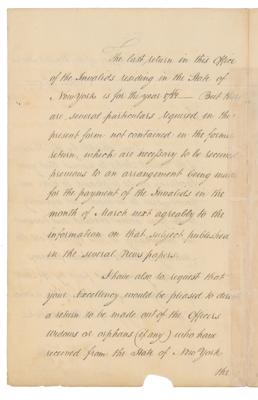 The last return in this Office
of the Invalids residing in the State of
New York is for the year
But there
are several particulars required in the
present form not contained in the former
return, which are necessary to be received
previous to an arrangement being made
for the payment of the Invalids in the
month of March next agreeably to the
information on that subject published
in the several News papers.
I have also to request that
your Excellency would be pleased to direct
a return to be made out of the Officers
widows or orphans (if any) who have
received from the State of New York
the